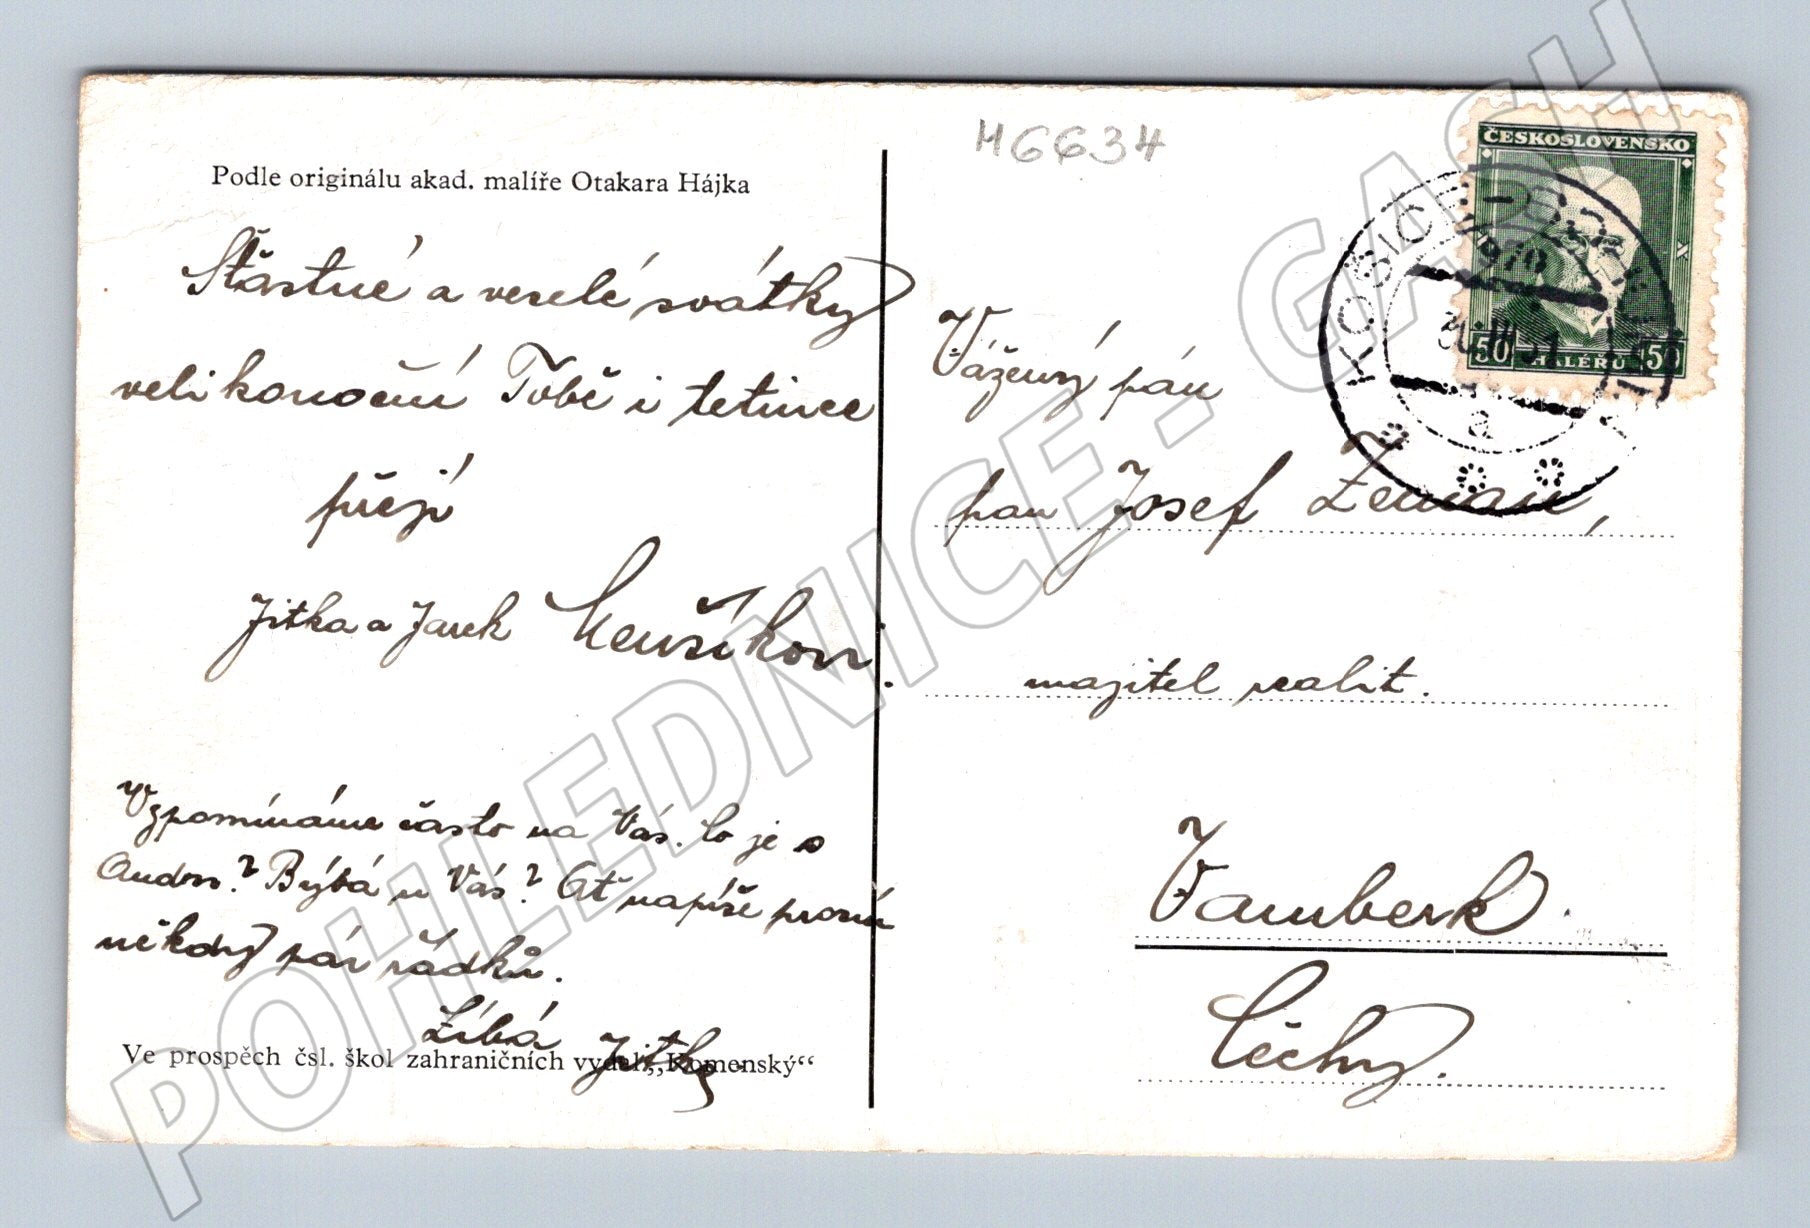 Podle originálu akad. malíře Otakara Hájka
M6634
Šťastné a veselé svátky
velikonoční Tobě i tetince
přejí
Jitka a Jarek
Vzpomínáme často na Vás. Co je s
? Bývá u Vás? Ať napíše prosím
někdy pár řádků.
Líbá Jitka
Ve prospěch čsl. škol zahraničních vydal „Komenský“
ČESKOSLOVENSKO
50 HALÉŘŮ 50
30.III.31
a
Vážený pán
pan Josef Zeman,
majitel realit.
Vamberk.
Čechy.
POHLEDNICE - GASH